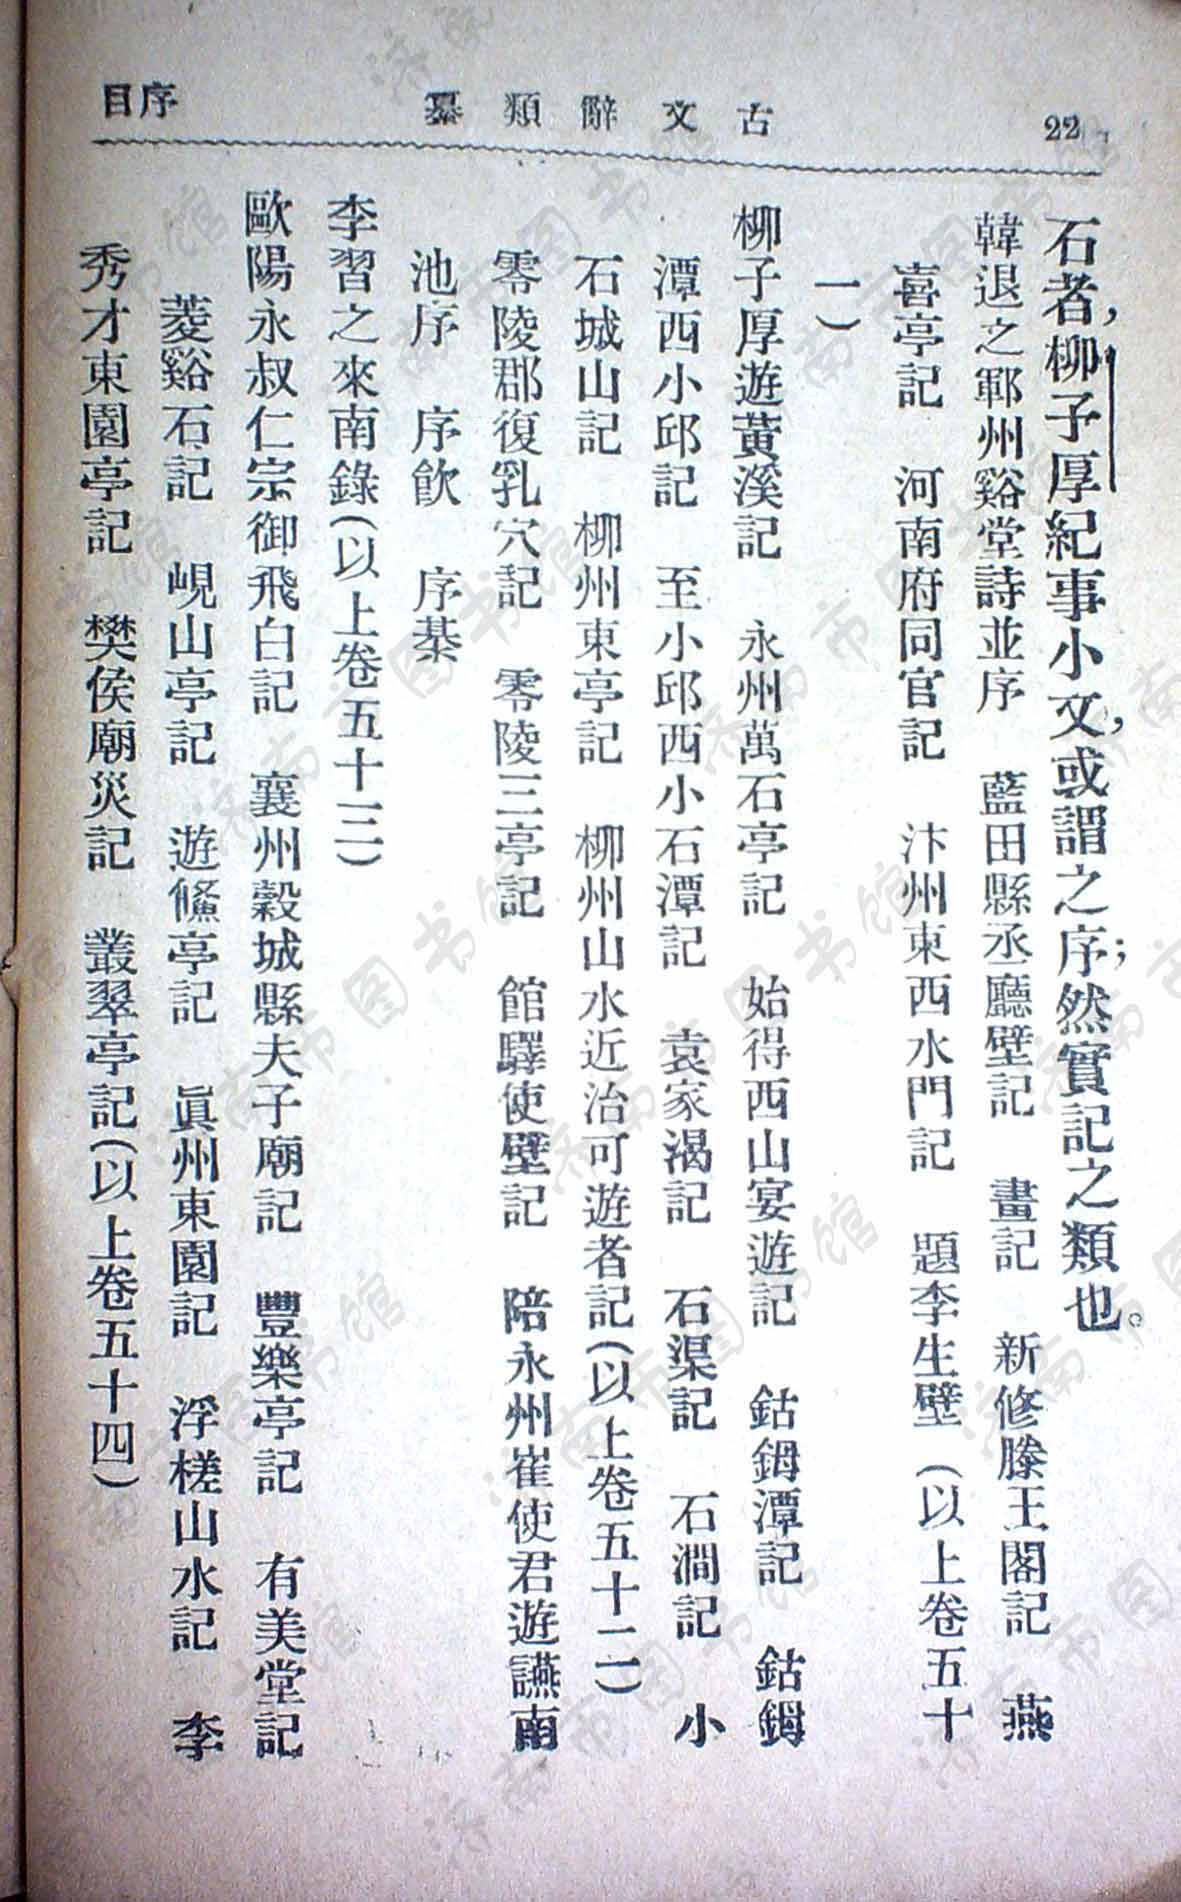 22
古文辭類纂
序目
石者,柳子厚紀事小文,或謂之序;然實記之類也。
韓退之鄆州谿堂詩並序　藍田縣丞廳壁記　畫記　新修滕王閣記　燕
喜亭記　河南府同官記　汴州東西水門記　題李生壁（以上卷五十
一）
柳子厚遊黃溪記　永州萬石亭記　始得西山宴遊記　鈷鉧潭記　鈷鉧
潭西小邱記　至小邱西小石潭記　袁家渴記　石渠記　石澗記　小
石城山記　柳州東亭記　柳州山水近治可遊者記（以上卷五十二）
零陵郡復乳穴記　零陵三亭記　館驛使壁記　陪永州崔使君遊讌南
池序　序飲　序棊
李習之來南錄（以上卷五十三）
歐陽永叔仁宗御飛白記　襄州穀城縣夫子廟記　豐樂亭記　有美堂記
菱谿石記　峴山亭記　遊鯈亭記　眞州東園記　浮槎山水記　李
秀才東園亭記　樊侯廟災記　叢翠亭記（以上卷五十四）
济南市图书馆